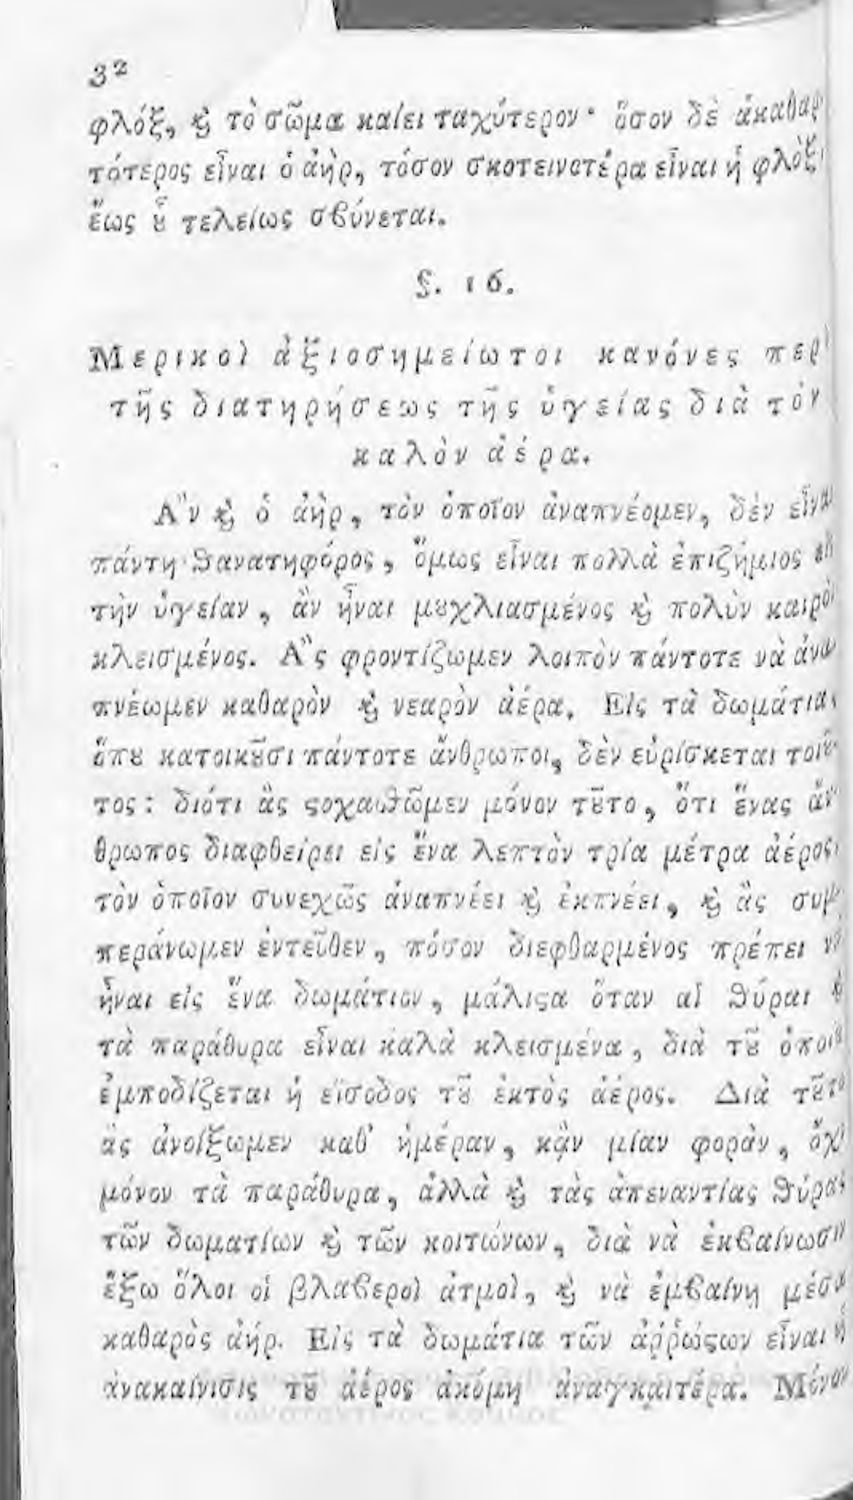 32
φλόξ, ϗ τὸ σῶμα καίει ταχύτερον· ὅσον δὲ ἀκαθαρ
τότερος εἶναι ὁ ἀὴρ, τόσον σκοτεινοτέρα εἶναι ἡ φλὸξ,
ἕως ȣ̔͂ τελείως σβύνεται.
§. 16.
Μερικοὶ ἀξιοσημείωτοι κανόνες περὶ
τῆς διατηρήσεως τῆς ὑγείας διὰ τὸν
καλὸν ἀέρα.
Ἂν ϗ ὁ ἀὴρ, τὸν ὁποῖον ἀναπνέομεν, δὲν εἶναι
πάντη θανατηφόρος, ὅμως εἶναι πολλὰ ἐπιζήμιος εἰς
τὴν ὑγείαν, ἂν ἦναι μȣχλιασμένος ϗ πολὺν καιρὸν
κλεισμένος. Ἂς φροντίζωμεν λοιπὸν πάντοτε νὰ ἀνα
πνέωμεν καθαρὸν ϗ νεαρὸν ἀέρα. Εἰς τὰ δωμάτια,
ὅπȣ κατοικȣ͂σι πάντοτε ἄνθρωποι, δὲν εὑρίσκεται τοιȣ͂
τος: διότι ἂς ϛοχασθῶμεν μόνον τȣ͂το, ὅτι ἕνας ἄν
θρωπος διαφθείρει εἰς ἕνα λεπτὸν τρία μέτρα ἀέρος,
τὸν ὁποῖον συνεχῶς ἀναπνέει ϗ ἐκπνέει, ϗ ἂς συμ
περάνωμεν ἐντεῦθεν, πόσον διεφθαρμένος πρέπει νὰ
ἦναι εἰς ἕνα δωμάτιον, μάλιϛα ὅταν αἱ θύραι ϗ
τὰ παράθυρα εἶναι καλὰ κλεισμένα, διὰ τȣ͂ ὁποίȣ
ἐμποδίζεται ἡ εἴσοδος τȣ͂ ἐκτὸς ἀέρος. Διὰ τȣ͂το
ἂς ἀνοίξωμεν καθ' ἡμέραν, κᾂν μίαν φορὰν, ὄχι
μόνον τὰ παράθυρα, ἀλλὰ ϗ τὰς ἀπεναντίας θύρας
τῶν δωματίων ϗ τῶν κοιτώνων, διὰ νὰ ἐκβαίνωσιν
ἔξω ὅλοι οἱ βλαβεροὶ ἀτμοὶ, ϗ νὰ ἐμβαίνη μέσα
καθαρὸς ἀήρ. Εἰς τὰ δωμάτια τῶν ἀῤῥώϛων εἶναι ἡ
ἀνακαίνισις τȣ͂ ἀέρος ἀκόμη ἀναγκαιτέρα. Μόνον